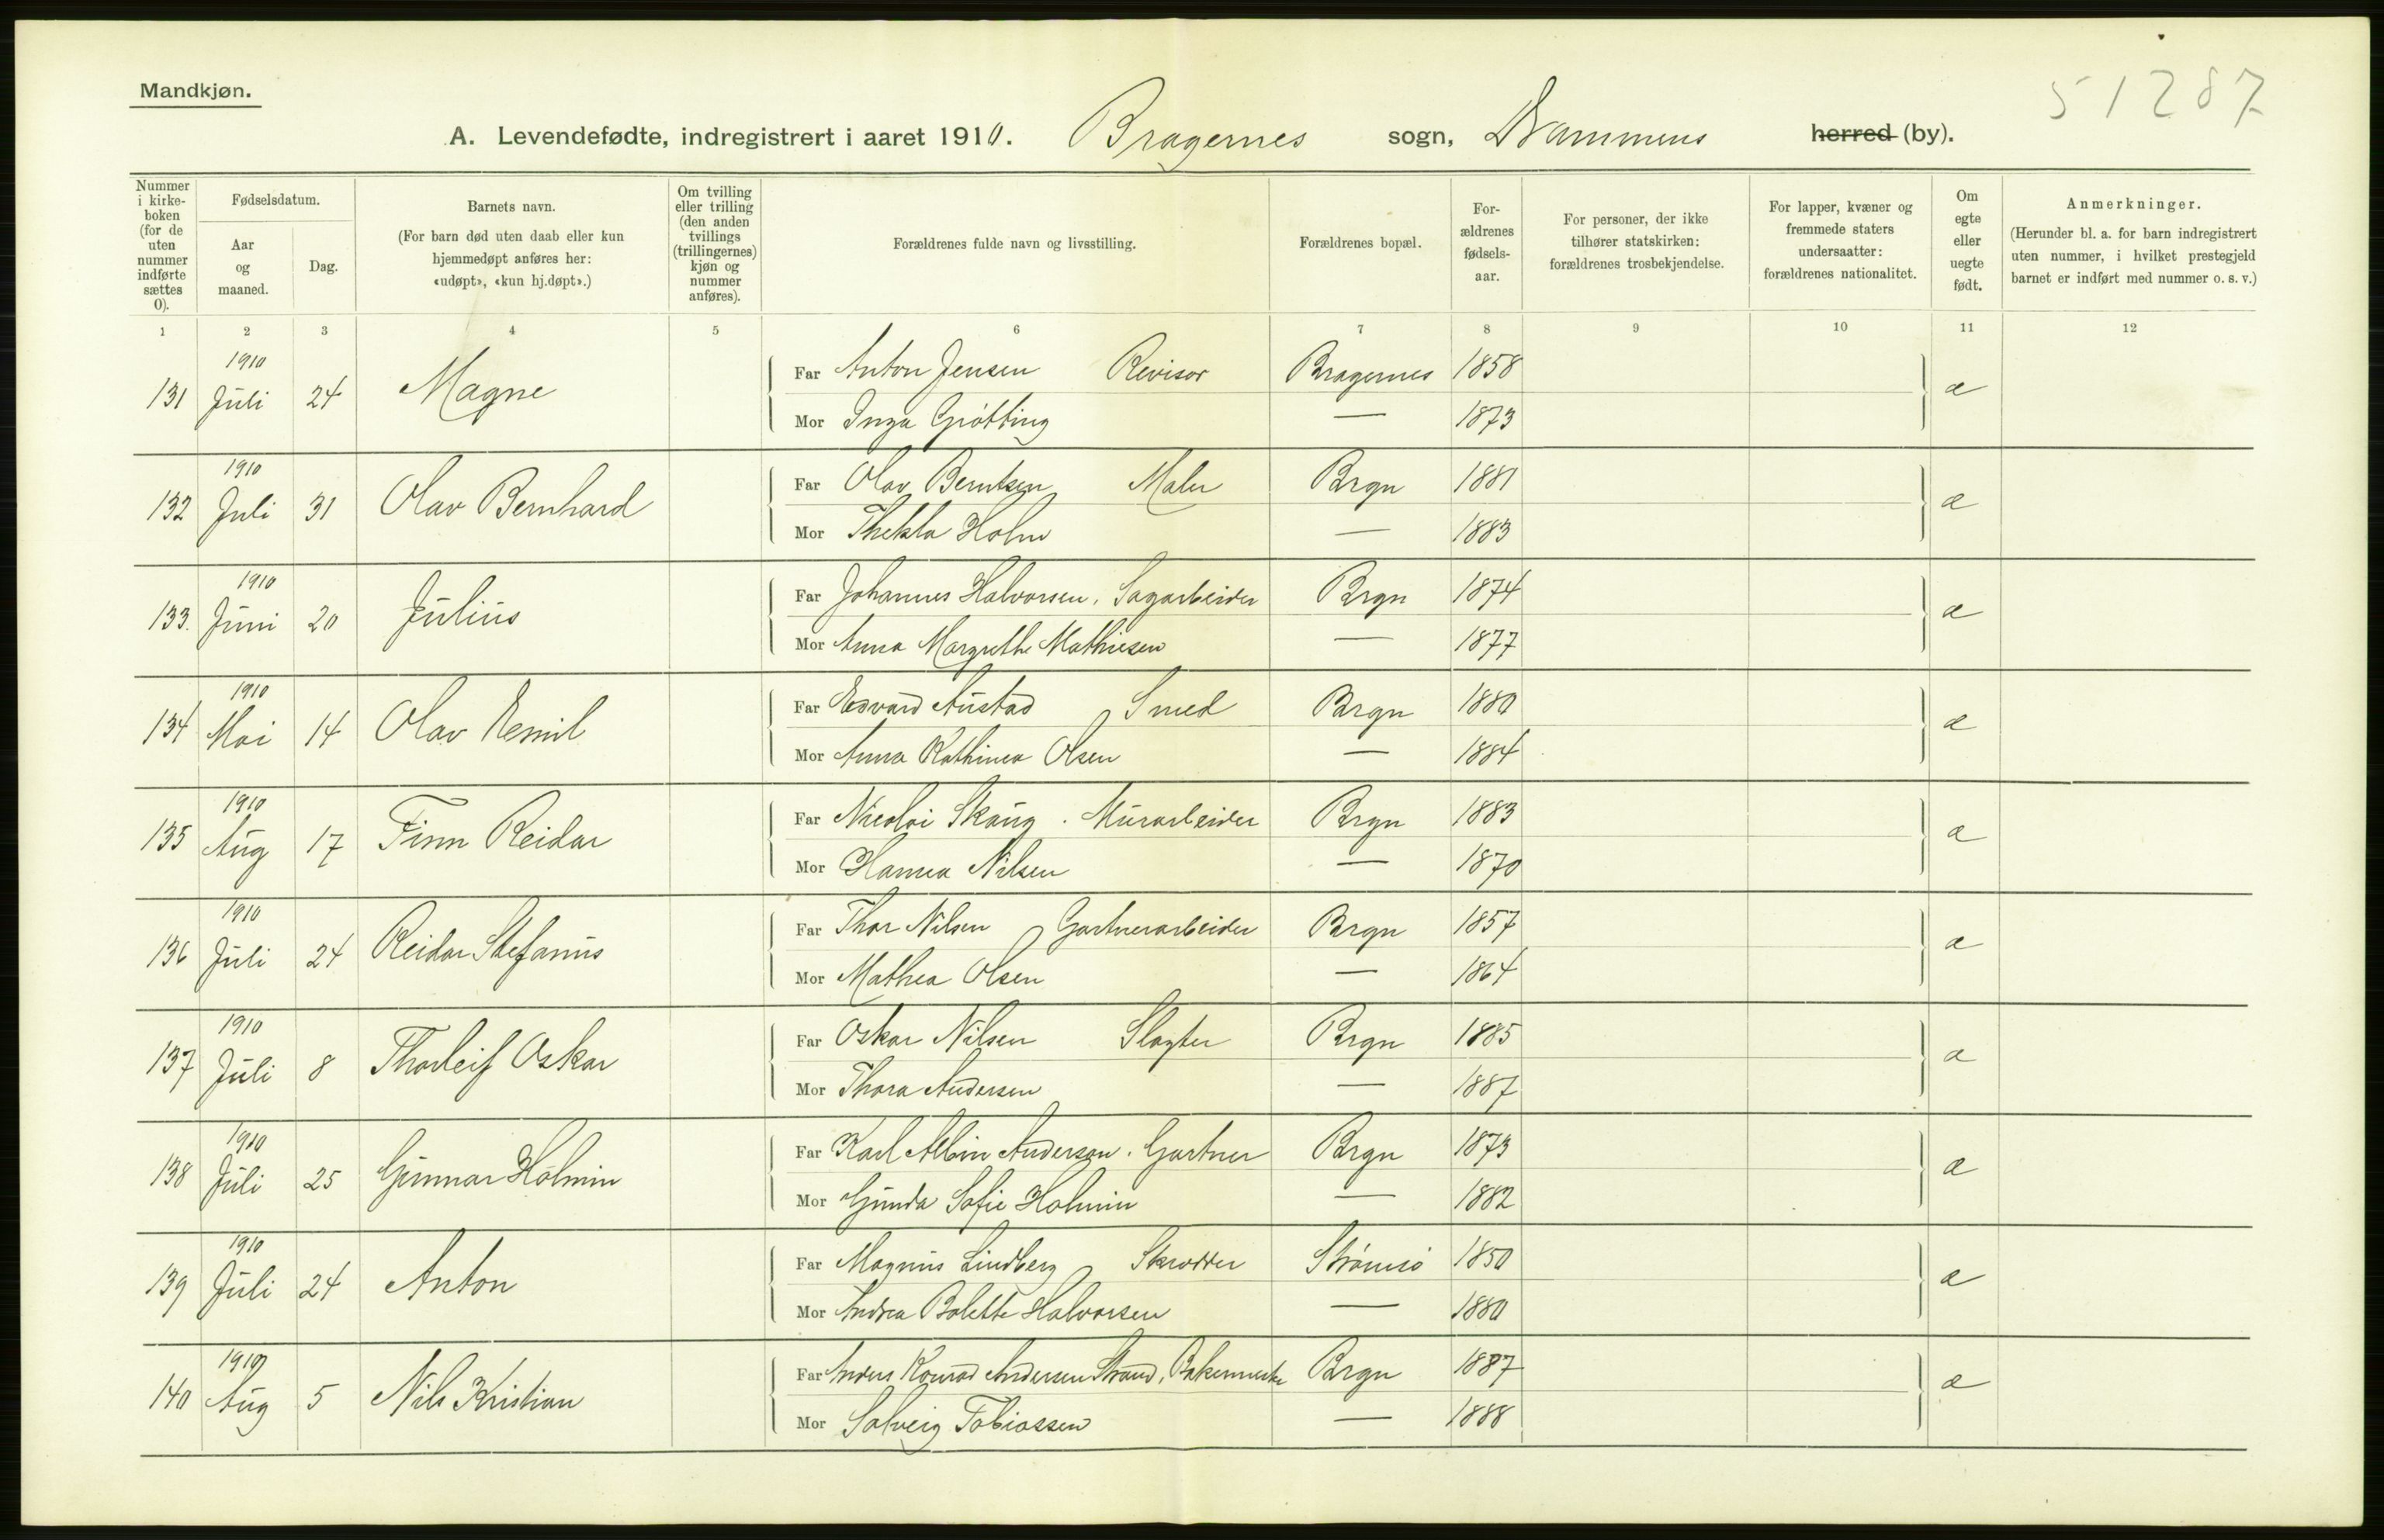 Mandkjøn.
51287
A. Levendefødte, indregistrert i aaret 1910. Bragernes sogn, Drammens herred (by).
Nummer i kirke-boken (for de uten nummer indførte sættes 0).
Fødselsdatum.
Aar og maaned.
Dag.
Barnets navn.
(For barn død uten daab eller kun hjemmedøpt anføres her: «udøpt», «kun hj.døpt».)
Om tvilling eller trilling (den anden tvillings (trillingernes) kjøn og nummer anføres).
Forældrenes fulde navn og livsstilling.
Forældrenes bopæl.
For-ældrenes fødsels-aar.
For personer, der ikke tilhører statskirken: forældrenes trosbekjendelse.
For lapper, kvæner og fremmede staters undersaatter: forældrenes nationalitet.
Om egte eller uegte født.
Anmerkninger.
(Herunder bl. a. for barn indregistrert uten nummer, i hvilket prestegjeld barnet er indført med nummer o. s. v.)
1 2 3 4 5 6 7 8 9 10 11 12
131 1910 Juli 24 Magne Far Anton Jensen Revisor Bragernes 1858 æ
Mor Inga Grötting — 1873
132 1910 Juli 31 Olav Bernhard Far Olav Berntsen Maler Brgn 1881 æ
Mor Thekla Holm — 1883
133. 1910 Juni 20 Julius Far Johannes Halvorsen, Sagarbeider Brgn 1874 æ
Mor Anna Margrethe Mathiesen — 1877
134 1910 Mai 14 Olav Emil Far Edvard Austad Smed Brgn 1880 æ
Mor Anna Kathinea Olsen — 1884
135 1910 Aug 17 Finn Reidar Far Nicolai Skaug. Murarbeider Brgn 1883 æ
Mor Hanna Nilsen — 1870
136 1910 Juli 24 Reidar Stefanus Far Thor Nilsen Gartnerarbeider Brgn 1857 æ
Mor Mathea Olsen — 1864
137 1910 Juli 8 Thorleif Oskar Far Oskar Nilsen Slagter Brgn 1885 æ
Mor Thora Andersen — 1887
138 1910 Juli 25 Gunnar Holmin Far Karl Albin Anderson. Gartner Brgn 1873 æ
Mor Gunda Sofie Holmin — 1882
139 1910 Juli 24 Anton Far Magnus Lindberg Skrædder Strømsø 1850 æ
Mor Andrea Bolette Halvorsen — 1880
140 1910 Aug 5 Nils Kristian Far Anders Konrad Andersen Strand, Brgn 1887 æ
Mor Solveig Tobiassen — 1888